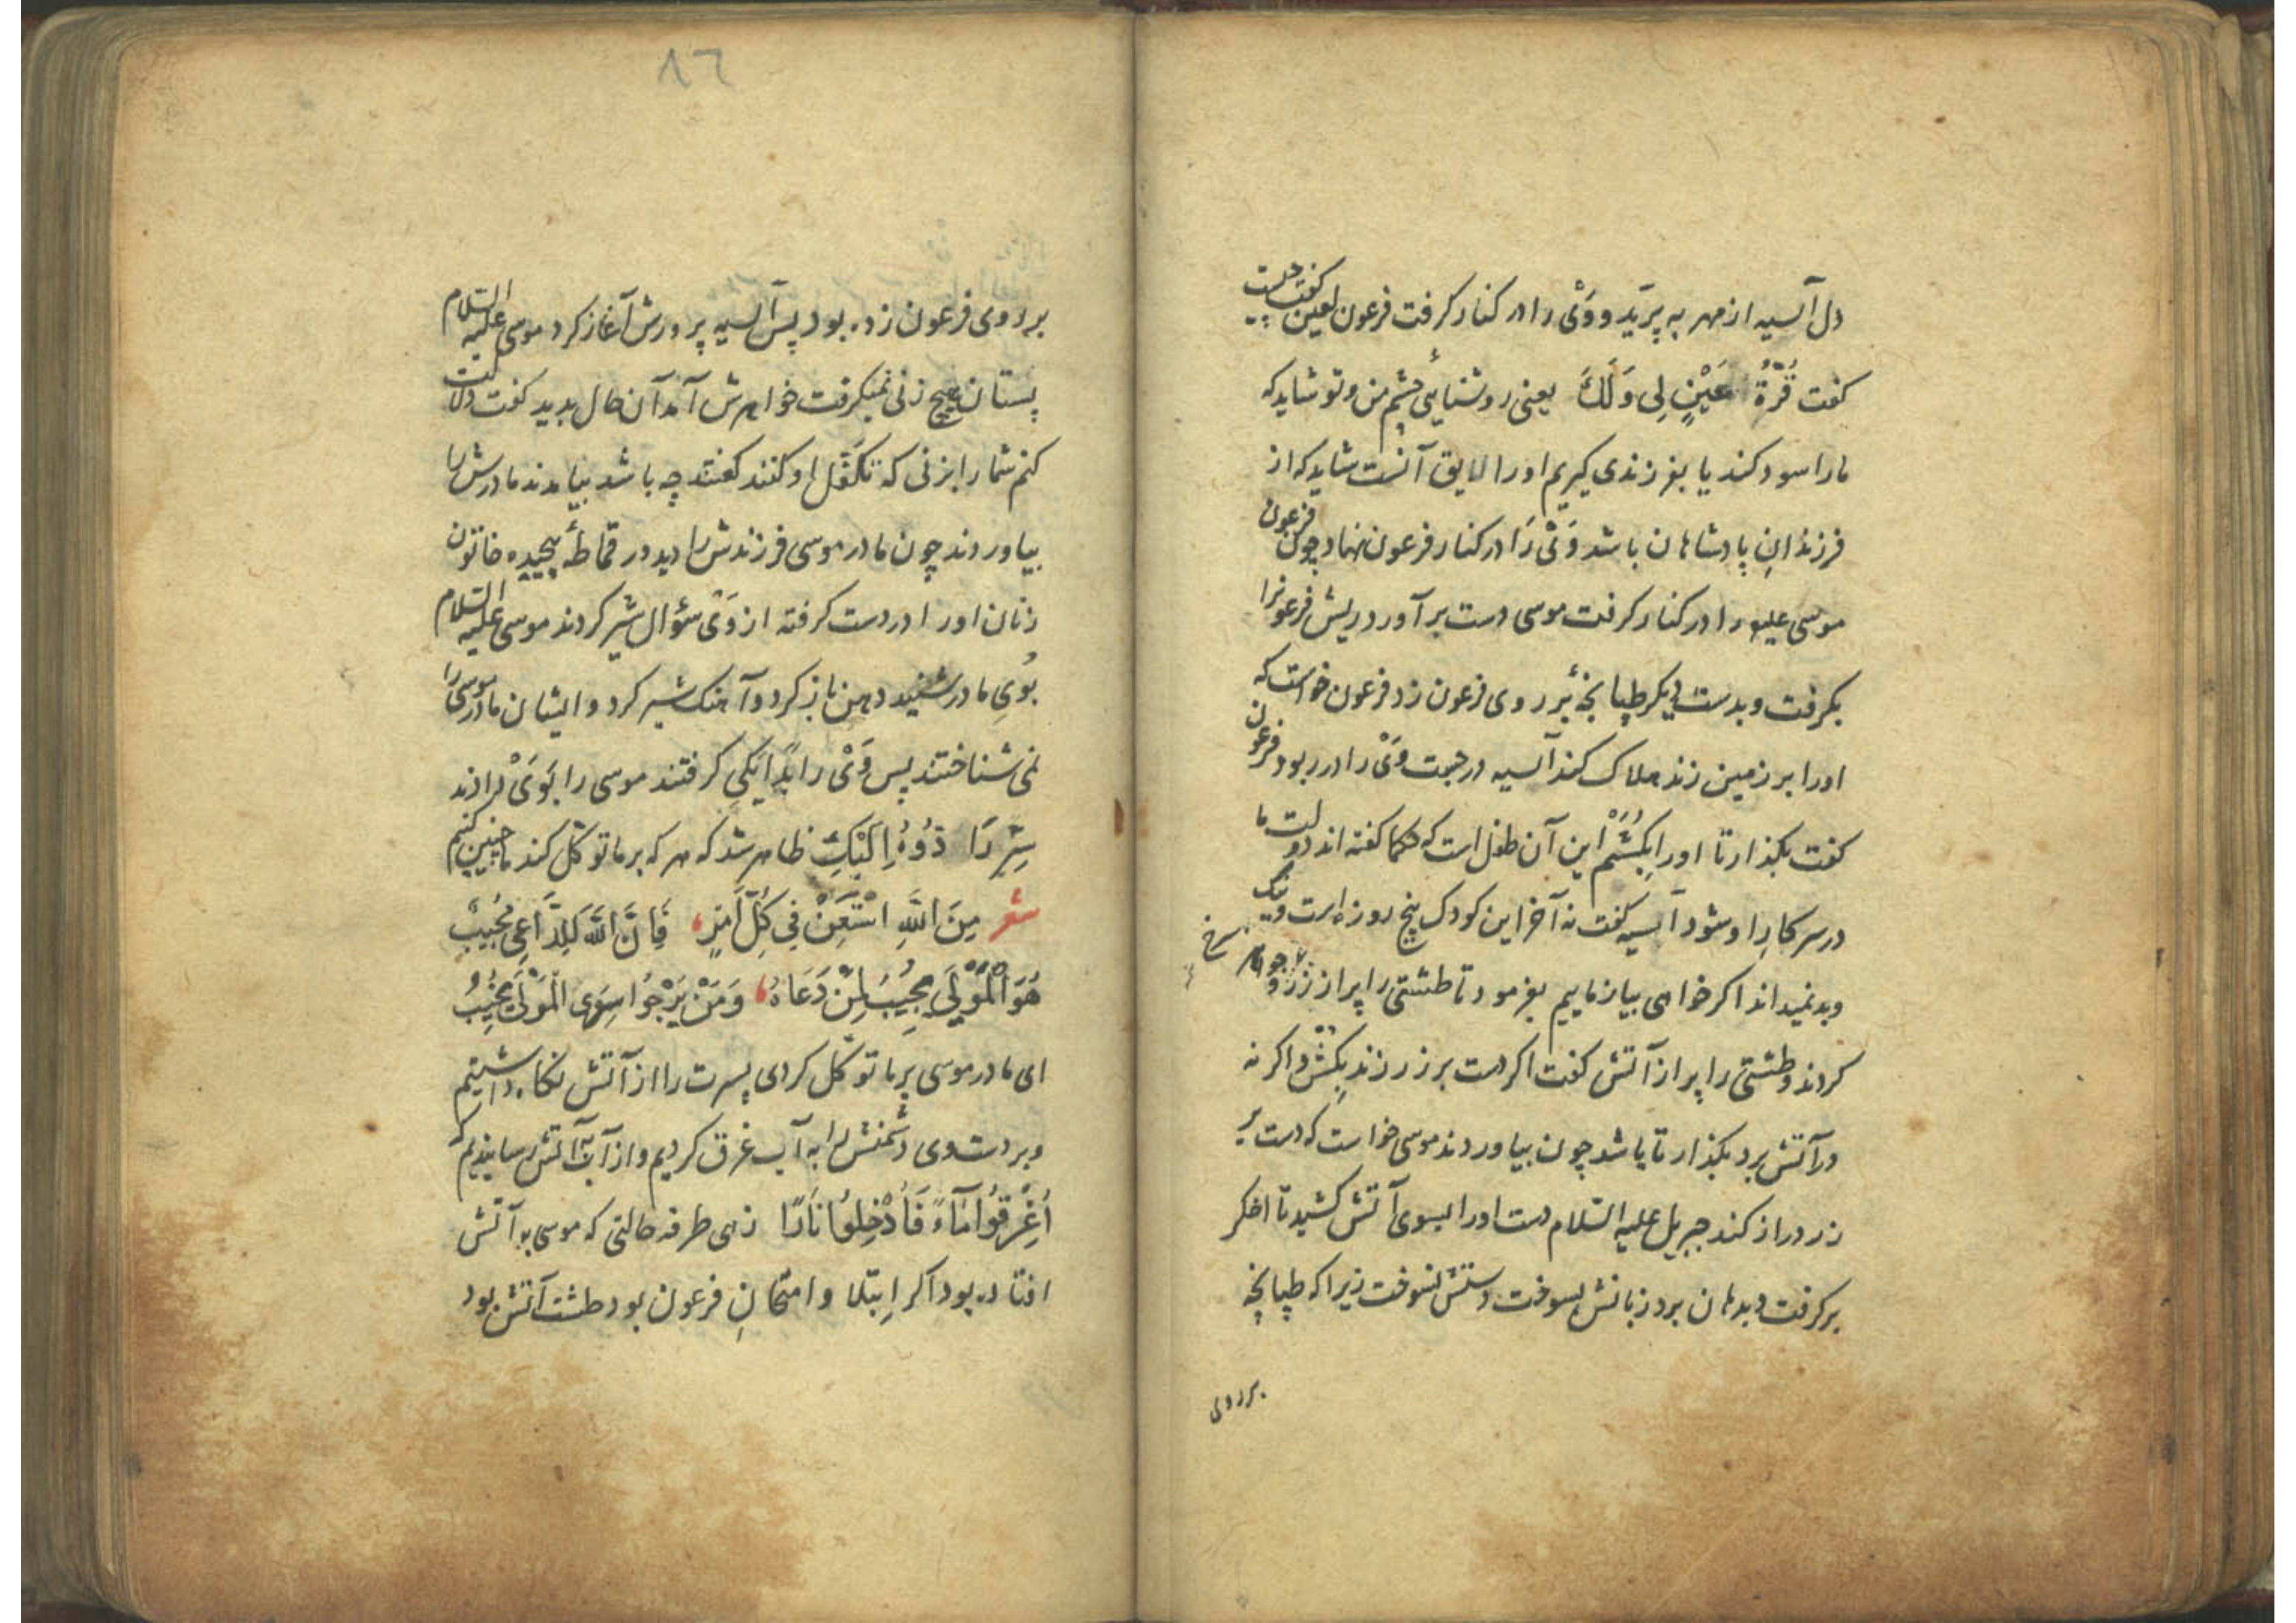 دل آسیه از مهر به پرید و وَیْ را در کنار گرفت فرعون لعین گفت کیست
کفت قُرَّةُ عَیْنٍ لِی وَلَكَ یعنی روشنایی چشم من و تو شاید که
مارا سود کند یا بفرزندی کیریم اورا لایق آنست شاید که از
فرزندانِ پادشاهان باشد وَیْ رَا در کنار فرعون نهاد چون فرعون
موسی علیه را در کنار کرفت موسی دست برآورد ریش فرعونرا
بکرفت و بدست دیکر طپانچۀ بر روی فرعون زد فرعون خواست که
اورا بر زمین زند هلاک کند آسیه در جست وَیْ را در ربود فرعون
کفت بکذار تا اورا بکُشَمْ این آن طفل است که حکما کفته اند دولت ما
در سر کارِ او شود آسیه کفت نه آخر این کودک پنج روزه است و نیک
و بد نمیداند اکر خواهی بیازماییم بفرمود تا طشتی را پر از زر و جواهر سرخ
کردند و طشتی را پر از آتش کفت اکر دست بر زر زند بِکُشْ و اکر نه
در آتش برد بکذار تا باشد چون بیاوردند موسی خواست که دست بر
زر دراز کند جبریل علیه السّلام دست اورا بسوی آتش کشید تا اخکر
برکرفت و بدهان برد زبانش بسوخت دستش نسوخت زیرا که طپانچه
بر روی
٨٦
بر روی فرعون زده بود پس آسیه پرورش آغاز کرد موسی علیه السّلام
پستان هیچ زنی نمیکرفت خواهرش آمد آن حال بدید کفت دلالت
کنم شما را بزنی که تَکَفُّل او کنند کفتند چه باشد بیامدند مادرش را
بیاوردند چون مادر موسی فرزندش را دید در قماطۀ پیچیده خاتون
زنان اورا در دست کرفته از وَیْ سؤال شیر کردند موسی علیه السّلام
بُویِ مادر شنید دهن باز کرد و آهنک شیر کرد و ایشان مادر موسی را
نمی شناختند پس وَیْ را بدایکی کرفتند موسی را بَوَیْ دادند
سِرِّ رَادُّوهُ اِلَیْكِ ظاهر شد که هر که بر ما توکّل کند ما چنین کنیم
شعر مِنَ اللّٰهِ اسْتَعِنْ فِی کُلِّ اَمْرٍ، فَاِنَّ اللّٰهَ لِلدَّاعِی مُجِیبُ
هُوَ الْمَوْلَی مُجِیبٌ لِمَنْ دَعَاهُ، وَمَنْ یَرْجُوا سِوَی الْمَوْلَی یَخِیبُ
ای مادر موسی بر ما توکّل کردی پسرت را از آتش نکاه داشتیم
و بر دست وی دشمنش را به آب غرق کردیم و از آب به آتش رسانیدیم که
اُغْرِقُوا مَآءً فَاُدْخِلُوا نَارًا زهی طرفه حالتی که موسی به آتش
افتاده بود اکر اِبتلا و امتحانِ فرعون بود طشت آتش بود